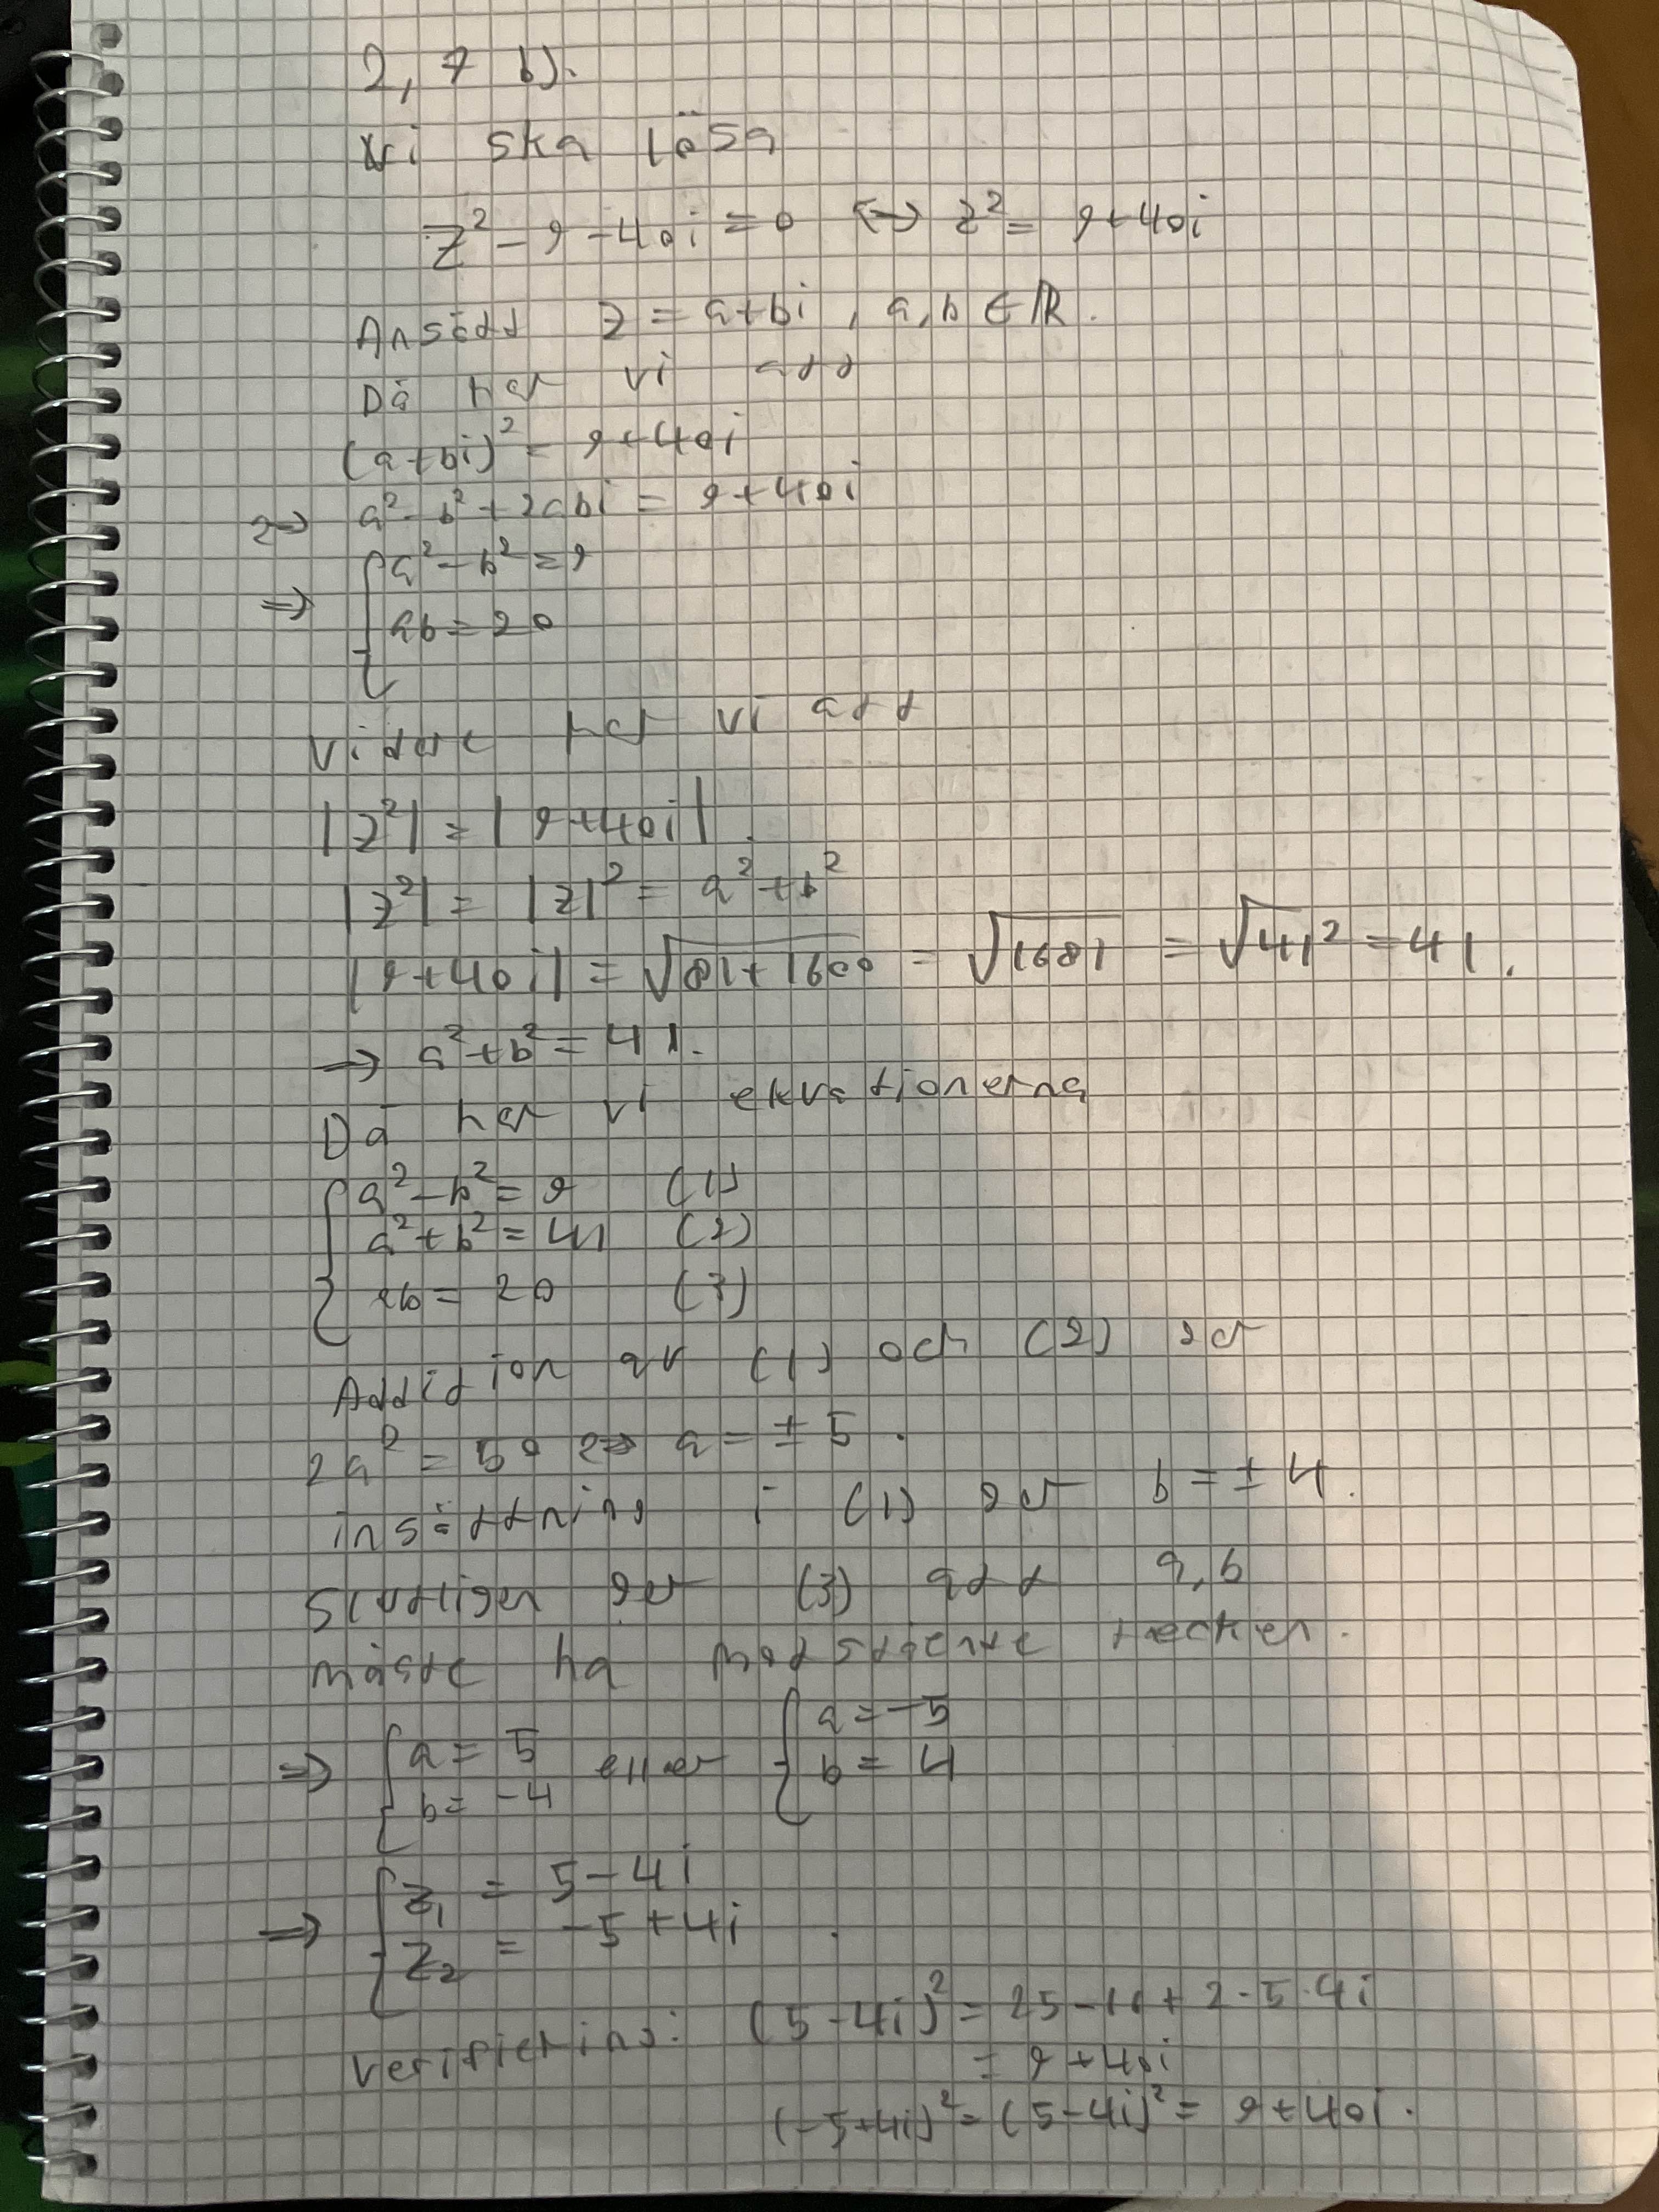 2,7 b).
Vi ska lösa
z² - 9 - 40i = 0 ⟺ z² = 9+40i
Ansätt z = a+bi, a,b ∈ ℝ.
Då har vi att
(a+bi)² = 9+40i
⟺ a² - b² + 2abi = 9+40i
⟹ { a² - b² = 9
ab = 20
Vidare har vi att
|z²| = |9+40i|.
|z²| = |z|² = a²+b²
|9+40i| = √(81+1600) = √1681 = √41² = 41.
⟹ a²+b² = 41.
Då har vi ekvationerna
{ a² - b² = 9 (1)
a² + b² = 41 (2)
ab = 20 (3)
Addition av (1) och (2) ger
2a² = 50 ⟺ a = ±5.
insättning i (1) ger b = ±4.
Slutligen ger (3) att a,b
måste ha motsatta tecken.
⟹ { a = 5 b = -4 eller { a = -5 b = 4
⟹ { z₁ = 5-4i
z₂ = -5+4i.
Verifiering: (5-4i)² = 25-16+2·5·4i
= 9+40i
(-5+4i)² = (5-4i)² = 9+40i.